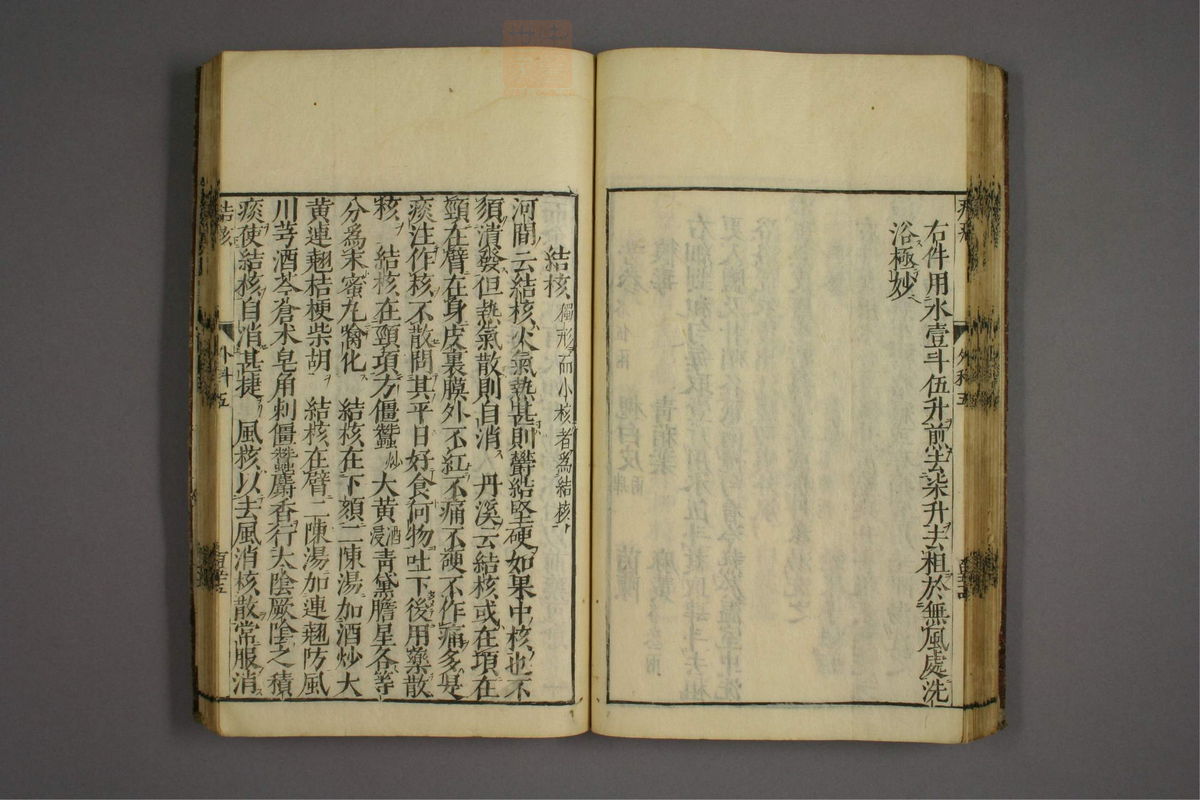 右件用水壹斗伍升煎去柒升去柤於無風處洗
浴極妙
外科五
結核 獨形而小核者爲結核
河間云結核火氣熱甚則鬱結堅硬如果中核也不
須潰發但熱氣散則自消 丹溪云結核或在項在
頸在臂在身皮裏膜外不紅不痛不硬不作痛多是
痰注作核不散問其平日好食何物吐下後用藥散
核 結核在頸項方僵蠶炒 大黃酒浸 靑黛膽星各等
分爲末蜜丸噙化 結核在下頦二陳湯加酒炒大
黃連翹桔梗柴胡 結核在臂二陳湯加連翹防風
川芎酒芩蒼朮皂角刺僵蠶麝香行太陰厥陰之積
痰使結核自消甚捷 風核以去風消核散常服消
結核
外科五